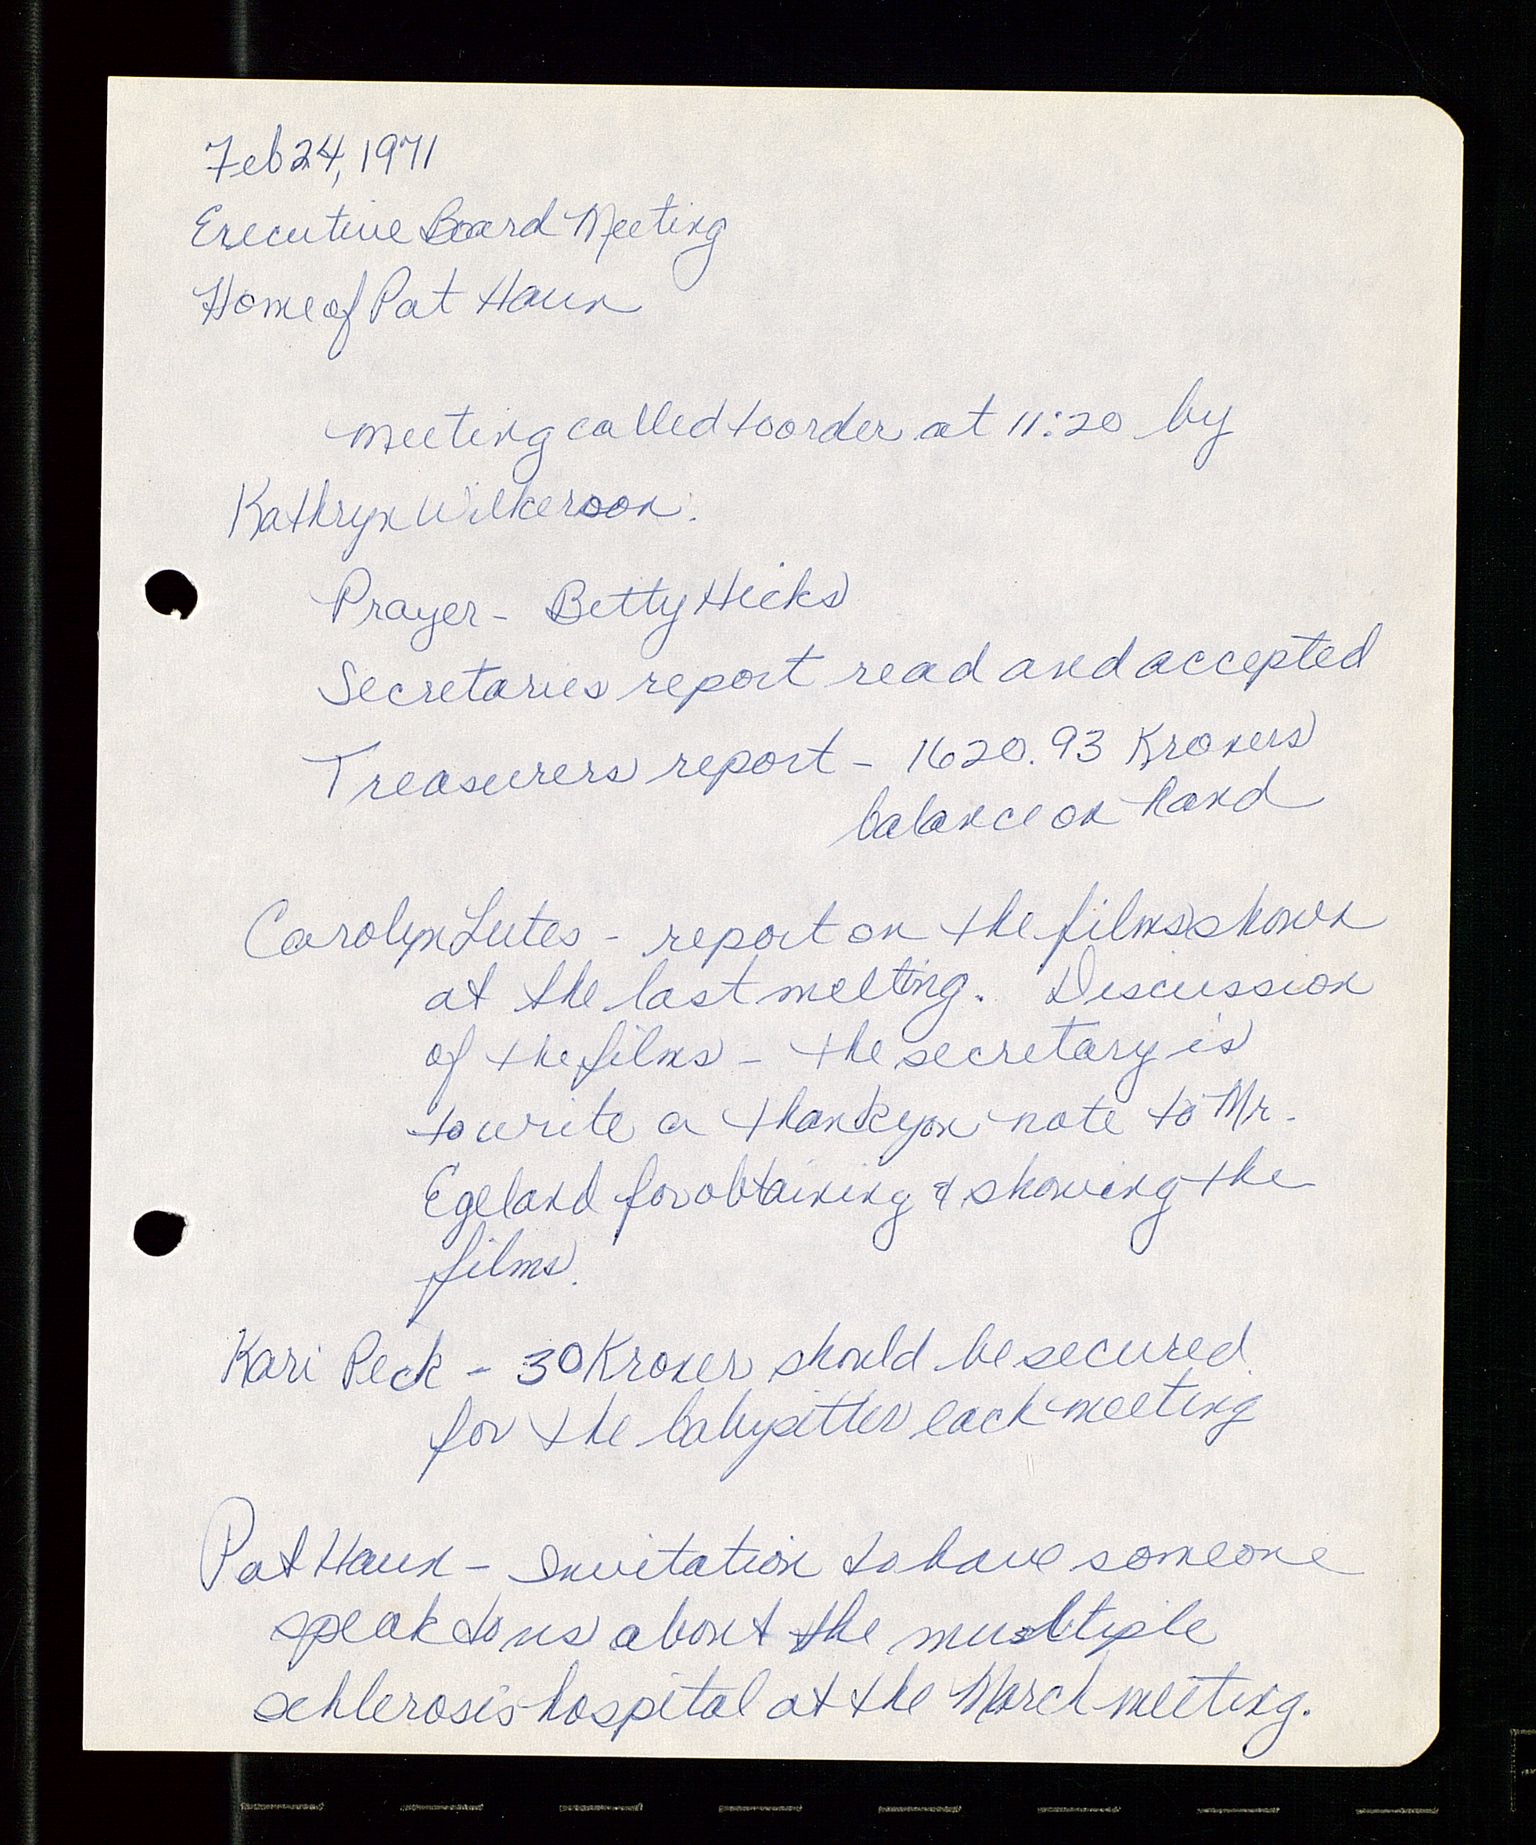 Feb 24, 1971
Executive Board Meeting
Home of Pat Haun
meeting called to order at 11:20 by
Kathryn Wilkerson.
Prayer - Betty Hicks
Secretaries report read and accepted
Treasurers report - 1620.93 Kroners
balance on hand
Carolyn Lutes - report on the films shown
at the last meeting. Discussion
of the films - the secretary is
to write a thank you note to Mr.
Egeland for obtaining & showing the
films.
Kari Peck - 30 Kroner should be secured
for the babysitter each meeting
Pat Haun - Invitation to have someone
speak to us about the multiple
schlerosis hospital at the March meeting.